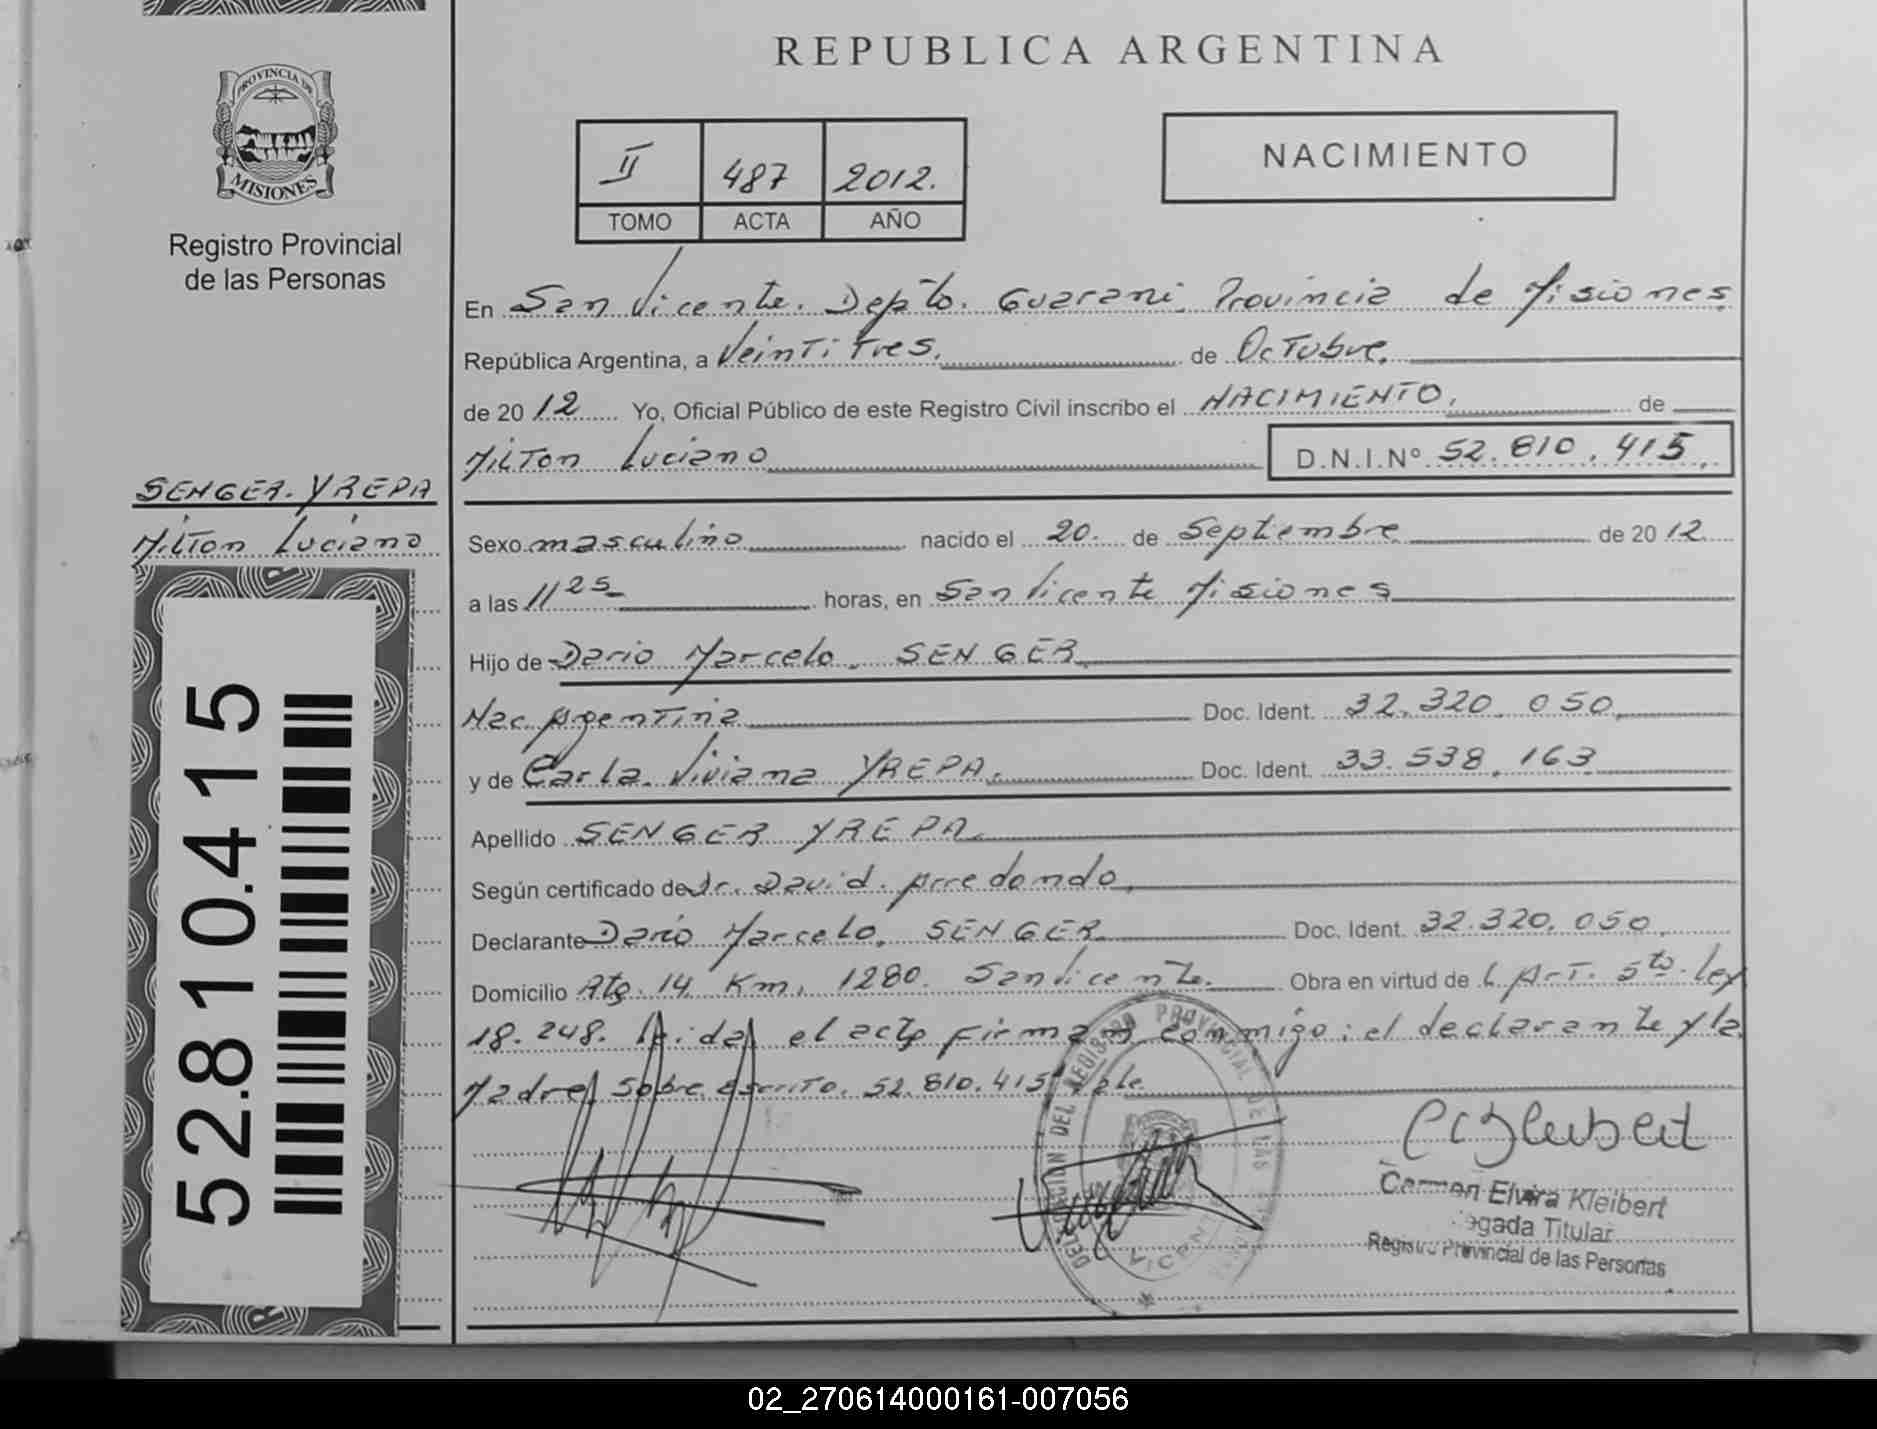 REPUBLICA ARGENTINA
PROVINCIA DE
MISIONES
Registro Provincial
de las Personas
II 487 2012.
TOMO ACTA AÑO
NACIMIENTO
En San Vicente. Depto. Guarani Provincia de Misiones
República Argentina, a Veintitres. de Octubre.
de 20 12 Yo, Oficial Público de este Registro Civil inscribo el NACIMIENTO. de
Milton Luciano D.N.I.Nº 52.810.415.
SENGER. YREPA
Milton Luciano
Sexo masculino nacido el 20. de Septiembre de 20 12.
a las 11 25 horas, en San Vicente Misiones
Hijo de Dario Marcelo. SENGER
Nac. Argentina Doc. Ident. 32.320.050.
y de Carla. Viviana YREPA. Doc. Ident. 33.538.163
Apellido SENGER YREPA.
Según certificado de Dr. David. Arredondo.
Declarante Dario Marcelo. SENGER Doc. Ident. 32.320.050.
Domicilio Rta. 14 Km. 1280. San Vicente. Obra en virtud de l Art. 5to. ley
18.248. leida el acta firman conmigo: el declarante y la
Madre. Sobre escrito. 52.810.415 vale
52.810.415
DELEGACION DEL REGISTRO PROVINCIAL DE LAS PERSONAS
Carmen Elvira Kleibert
Titular
Registro Provincial de las Personas
02_270614000161-007056